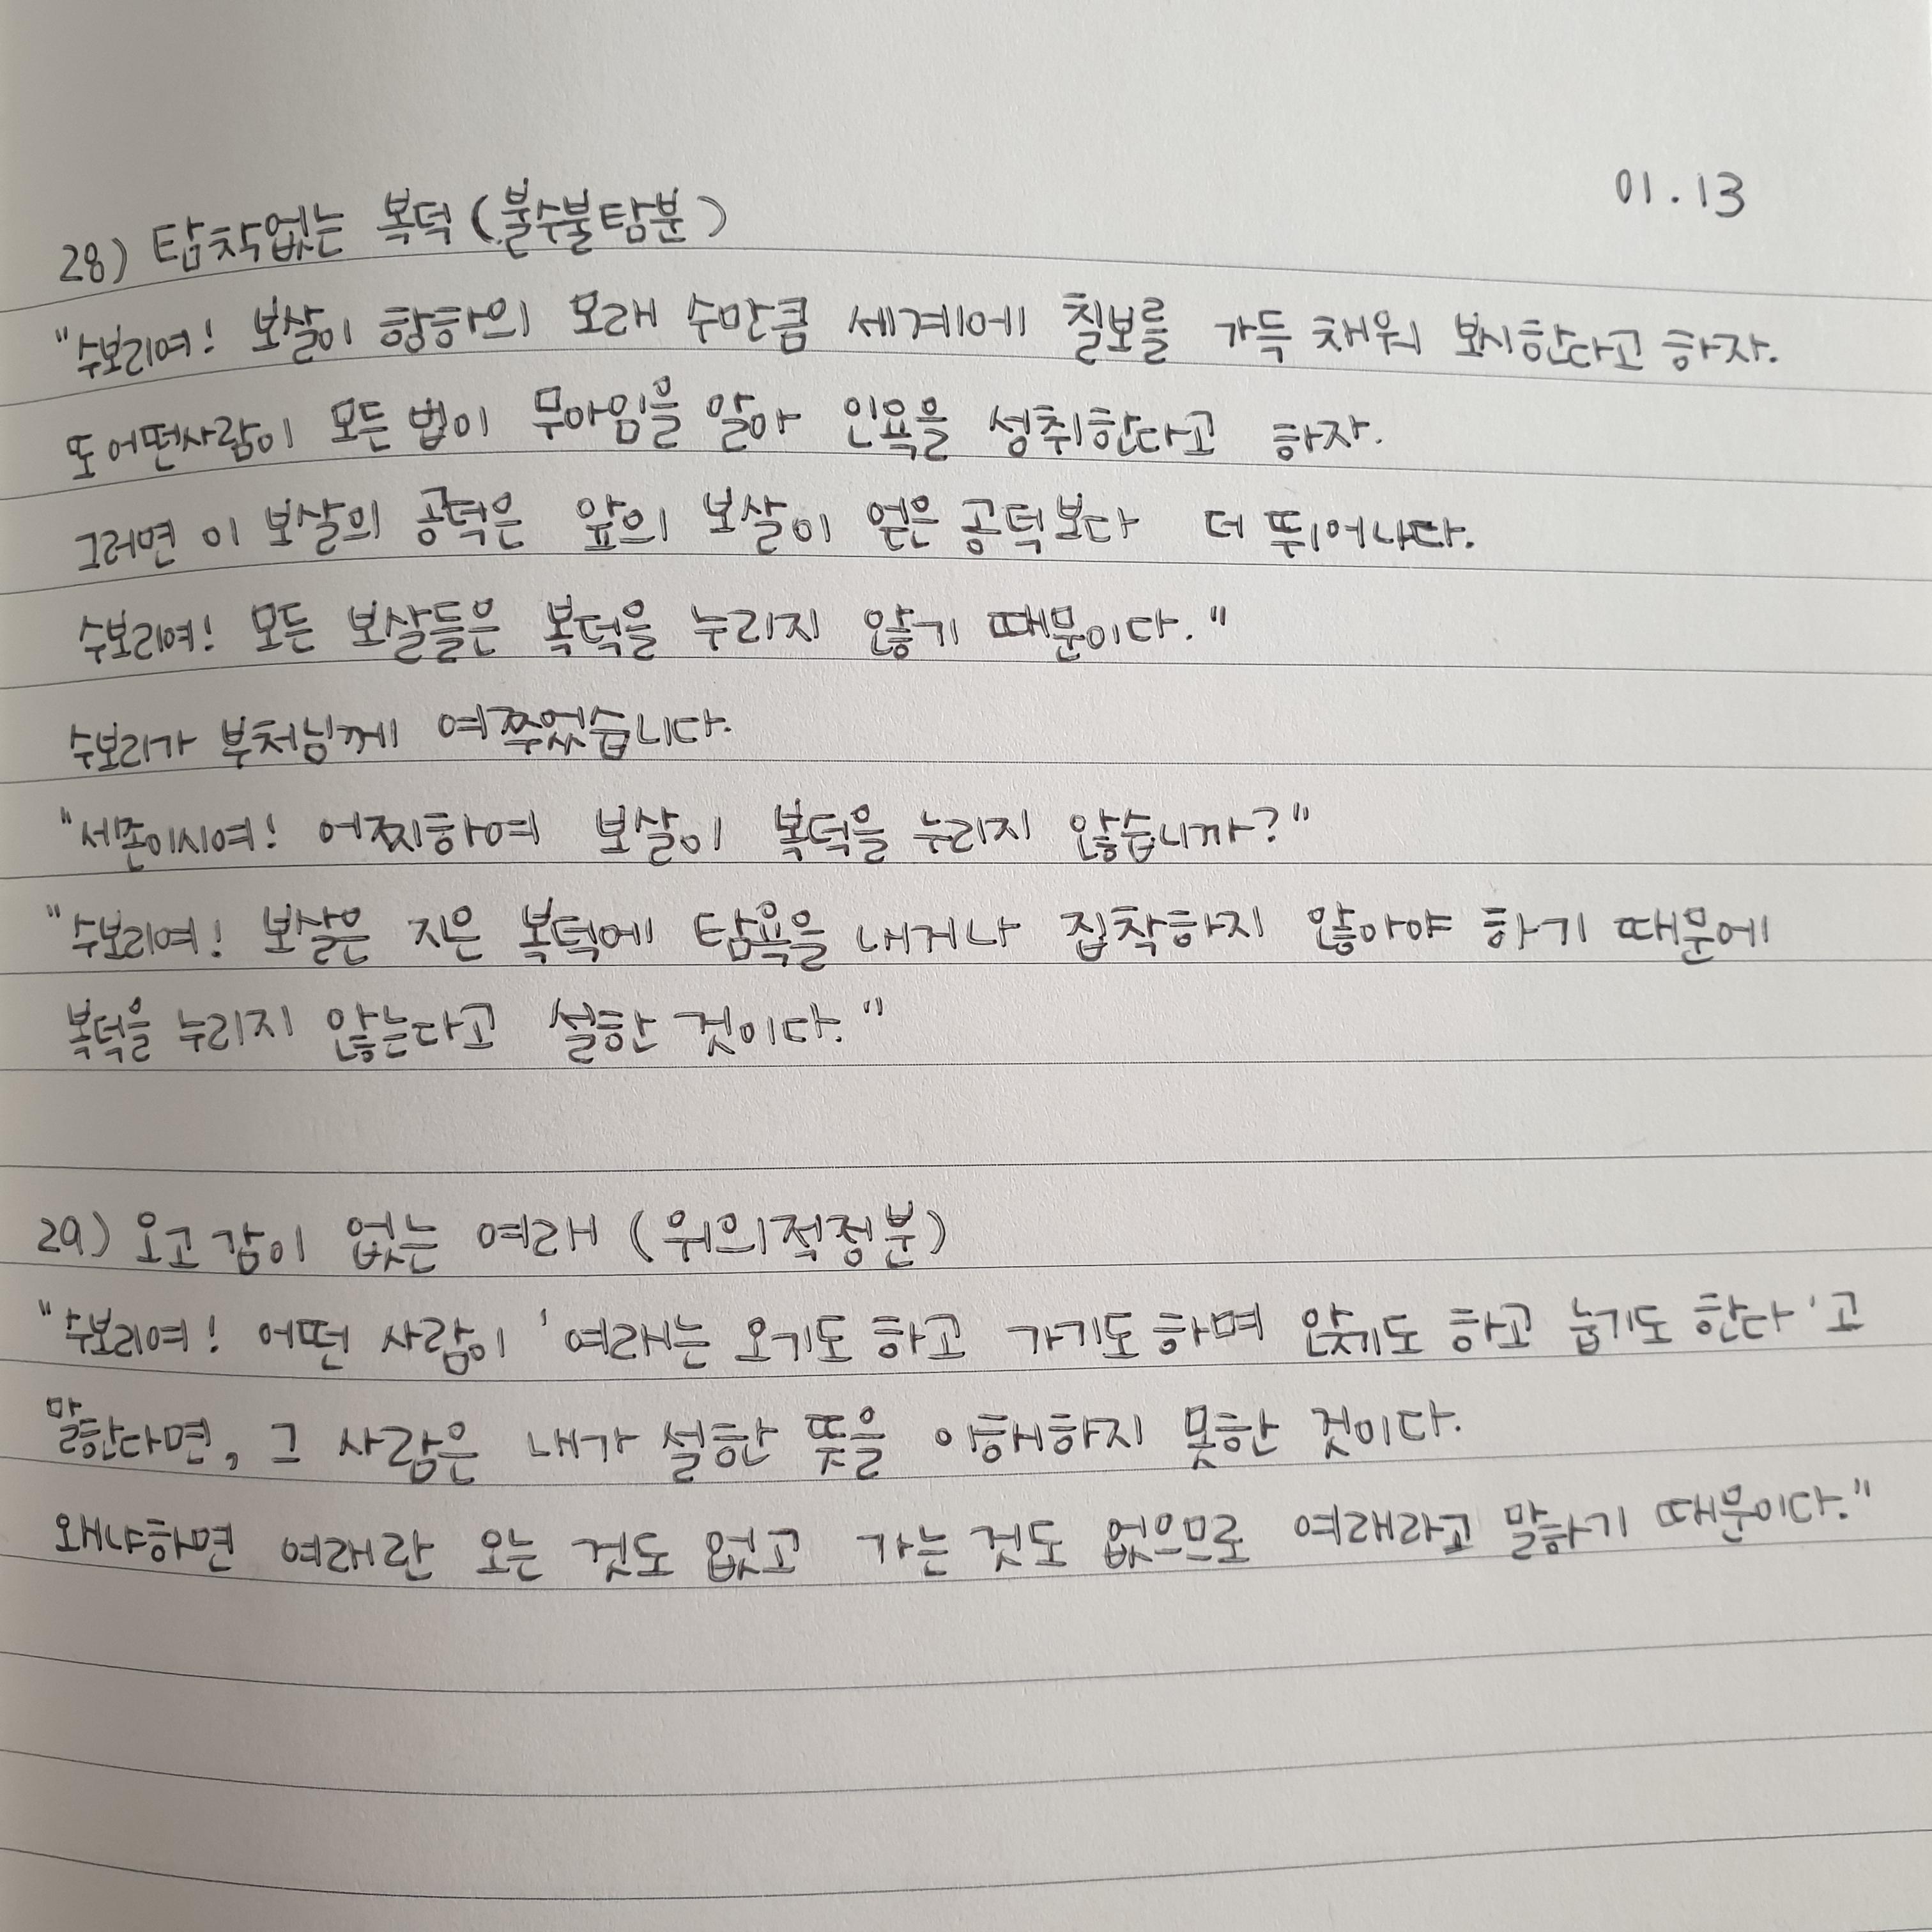 01.13
28) 탐착없는 복덕 (불수불탐분)
"수보리여! 보살이 항하의 모래 수만큼 세계에 칠보를 가득 채워 보시한다고 하자.
또 어떤사람이 모든 법이 무아임을 알아 인욕을 성취한다고 하자.
그러면 이 보살의 공덕은 앞의 보살이 얻은 공덕보다 더 뛰어나다.
수보리여! 모든 보살들은 복덕을 누리지 않기 때문이다."
수보리가 부처님께 여쭈었습니다.
"세존이시여! 어찌하여 보살이 복덕을 누리지 않습니까?"
"수보리여! 보살은 지은 복덕에 탐욕을 내거나 집착하지 않아야 하기 때문에
복덕을 누리지 않는다고 설한 것이다."
29) 오고 감이 없는 여래 (위의적정분)
"수보리여! 어떤 사람이 '여래는 오기도 하고 가기도 하며 앉기도 하고 눕기도 한다'고
말한다면, 그 사람은 내가 설한 뜻을 이해하지 못한 것이다.
왜냐하면 여래란 오는 것도 없고 가는 것도 없으므로 여래라고 말하기 때문이다."